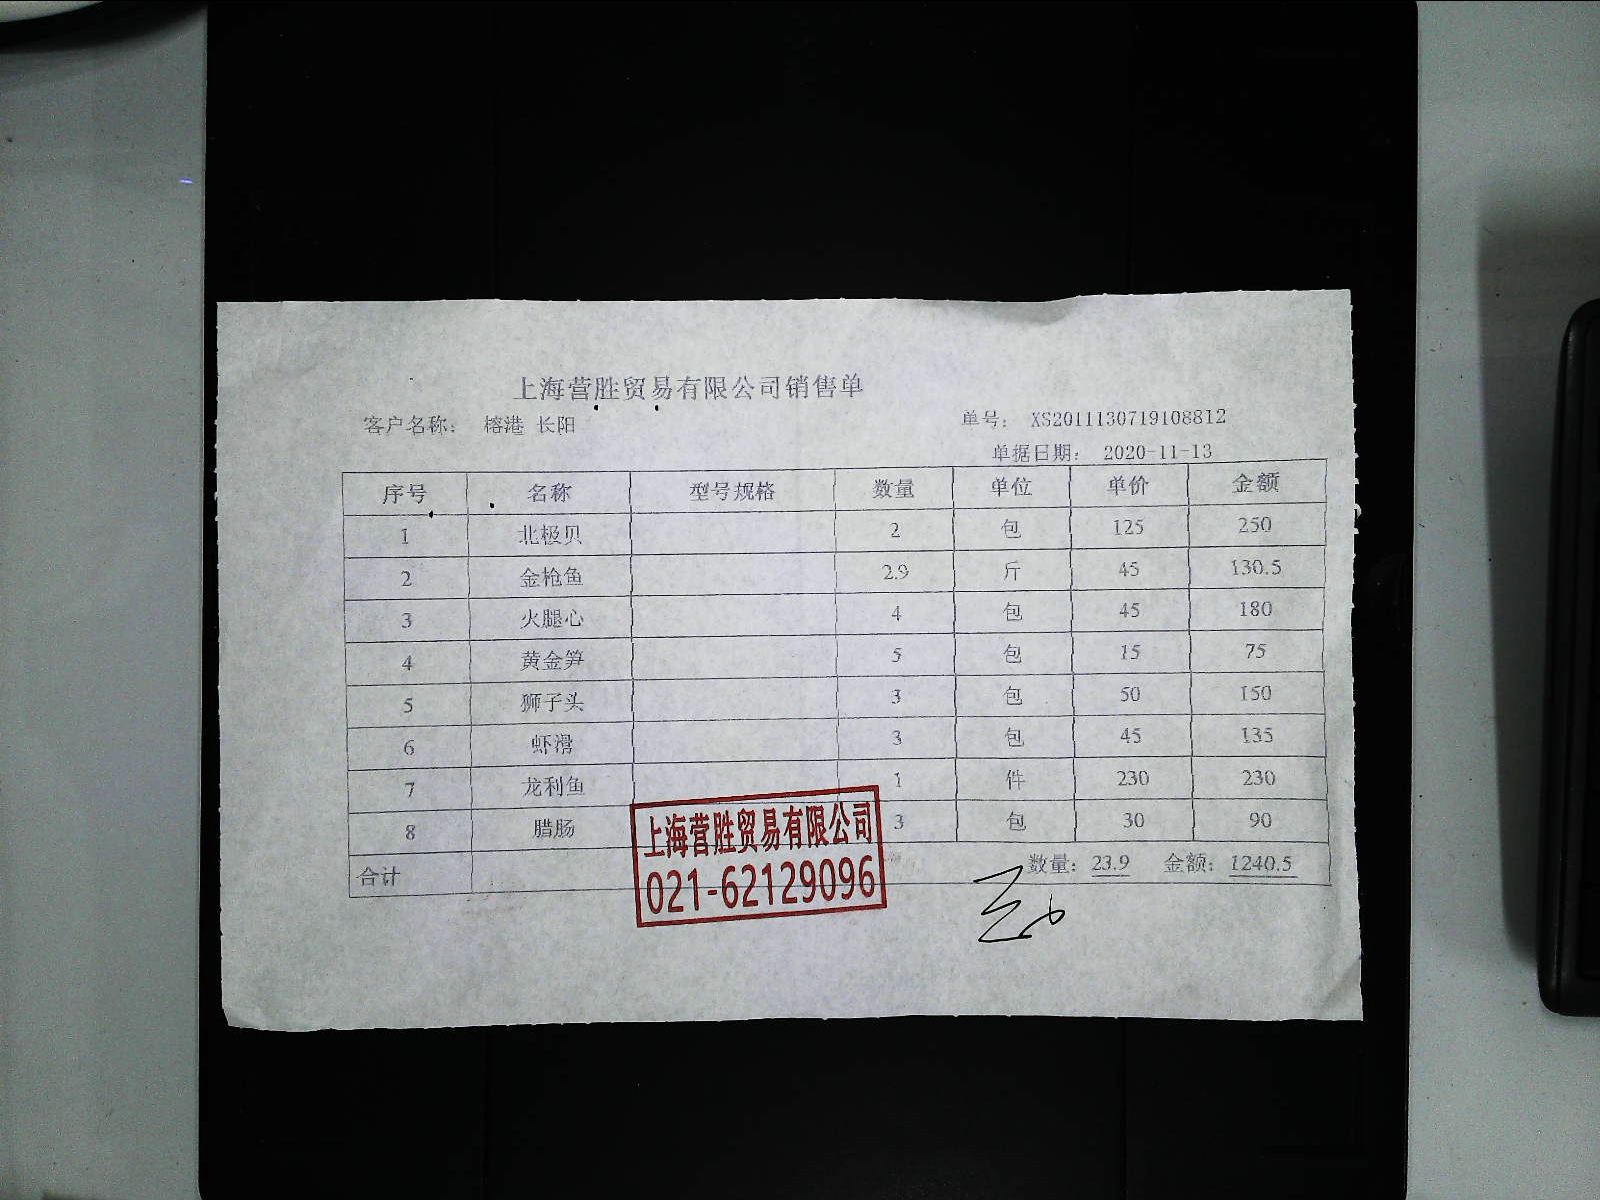 上海营胜贸易有限公司销售单
客户名称： 榕港 长阳 单号： XS2011130719108812
单据日期： 2020-11-13
序号 名称 型号规格 数量 单位 单价 金额
1 北极贝 2 包 125 250
2 金枪鱼 2.9 斤 45 130.5
3 火腿心 4 包 45 180
4 黄金笋 5 包 15 75
5 狮子头 3 包 50 150
6 虾滑 3 包 45 135
7 龙利鱼 1 件 230 230
8 腊肠 3 包 30 90
合计 数量：23.9 金额：1240.5
上海营胜贸易有限公司
021-62129096